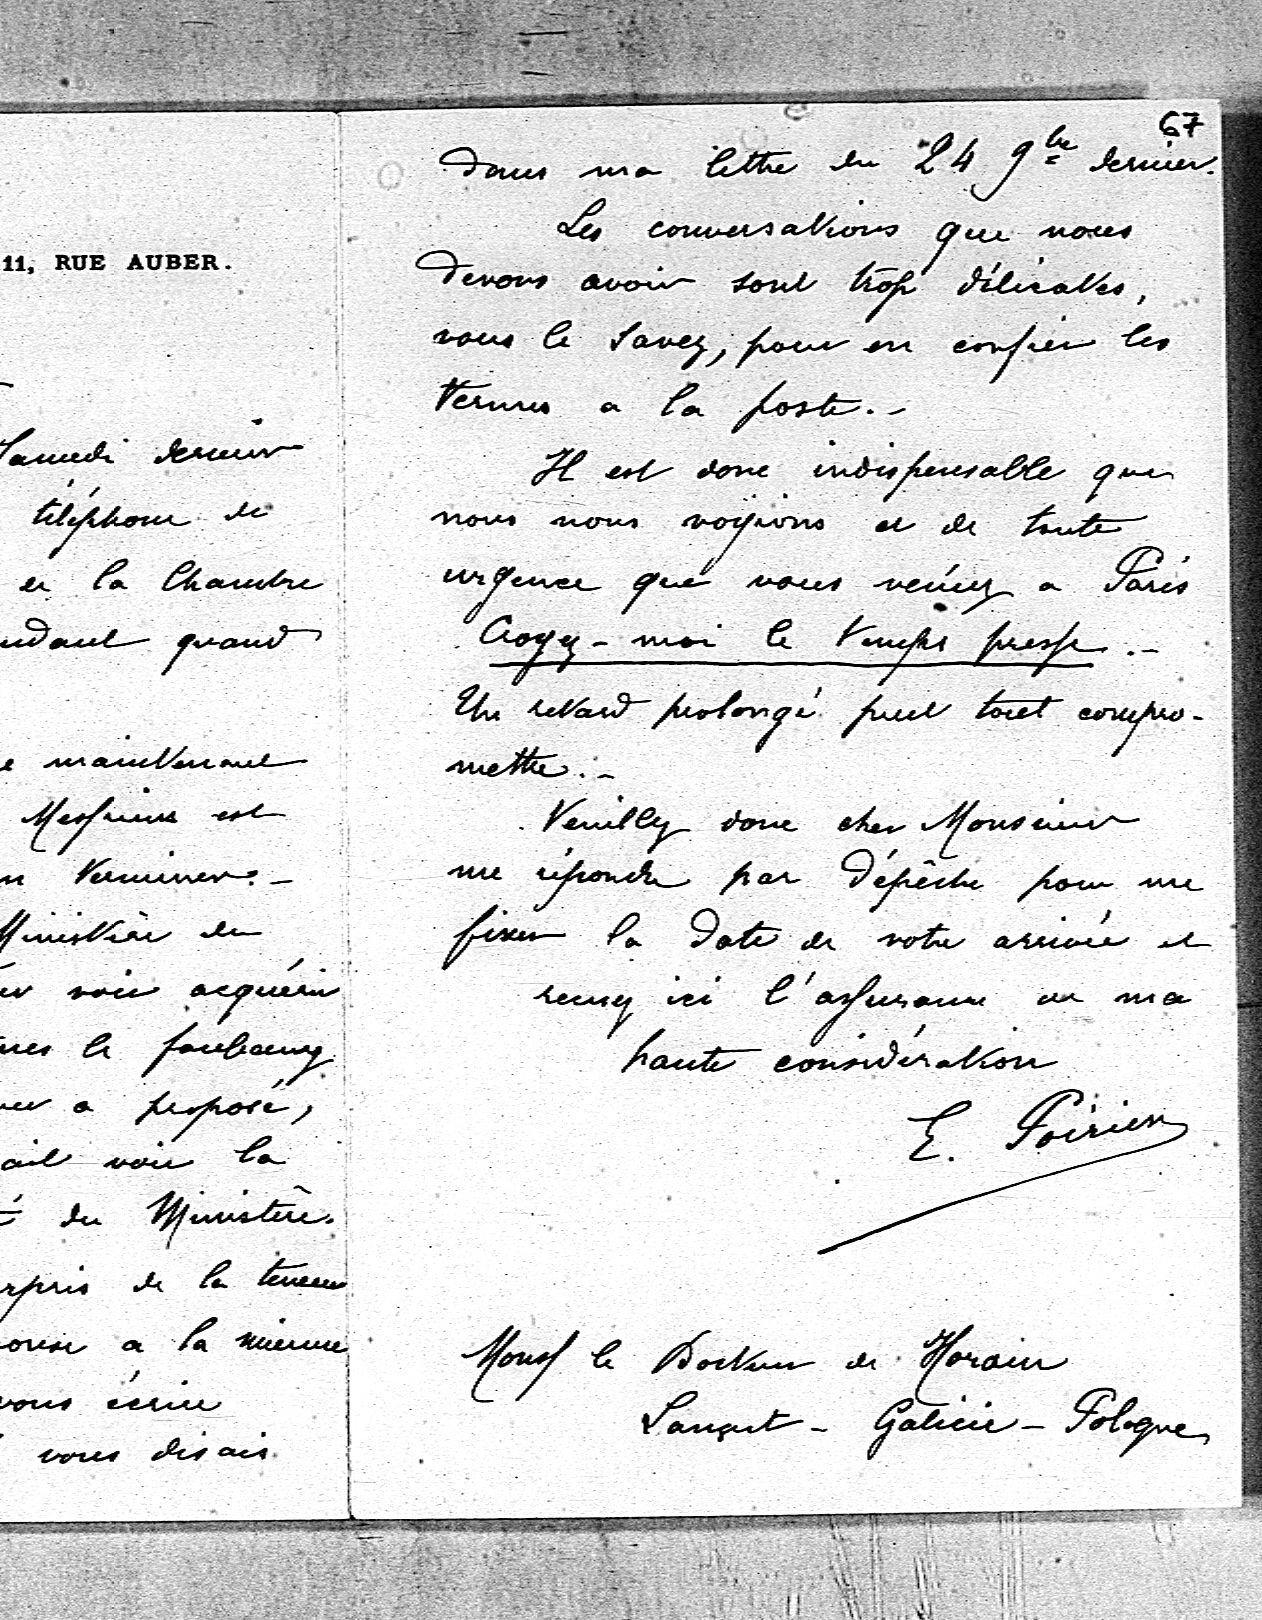 11, RUE AUBER.
Samedi dernier
téléphone de
et la Chambre
quand
maintenant
Messieurs est
terminer. -
Ministère du
voir acquérir
le faubourg
a proposé,
voir la
du Ministère.
de la teneur
a la mienne
vous écrire
vous disais
67
dans ma lettre du 24 9bre dernier.
Les conversations que nous
devons avoir sont trop délicates,
vous le savez, pour en confier les
termes a la poste. -
Il est donc indispensable que
nous nous voyions et de toute
urgence que vous veniez a Paris
Croyez-moi le temps presse. -
Un retard prolongé peut tout compro-
mettre. -
Veuillez donc cher Monsieur
me répondre par dépêche pour me
fixer la date de votre arrivée et
recevez ici l'assurance de ma
haute considération
E. Poirier
Monsr le Docteur de Horain
Lançut - Galicie - Pologne